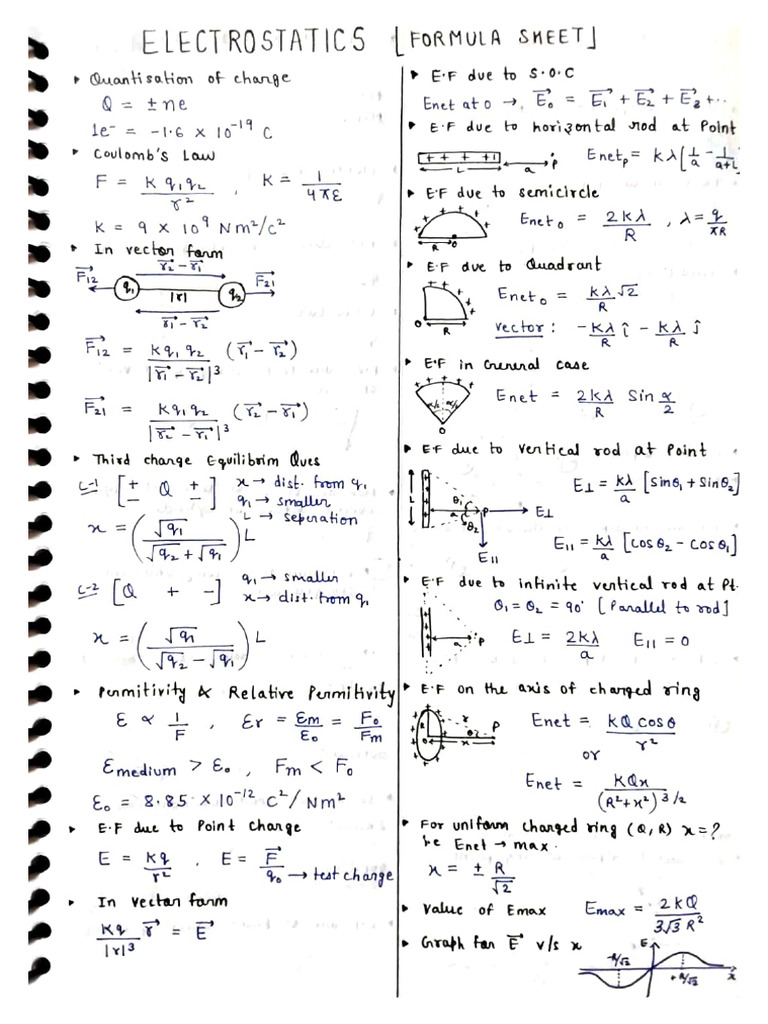 ELECTROSTATICS [FORMULA SHEET]
▸ Quantisation of charge
Q = ±ne
1e⁻ = -1.6 × 10⁻¹⁹ C
▸ Coulomb's Law
F = K q₁q₂ / r² , K = 1 / 4πε
K = 9 × 10⁹ Nm²/c²
▸ In vector form
r₂⃗ - r₁⃗
F₁₂⃗ q₁ |r| q₂ F₂₁⃗
r₁⃗ - r₂⃗
F₁₂⃗ = Kq₁q₂ / |r₁⃗ - r₂⃗|³ (r₁⃗ - r₂⃗)
F₂₁⃗ = Kq₁q₂ / |r₂⃗ - r₁⃗|³ (r₂⃗ - r₁⃗)
▸ Third charge Equilibrim Ques
C-1 [+/- Q +/-] x → dist. from q₁
q₁ → smaller
L → sepration
x = (√q₁ / √q₂ + √q₁) L
C-2 [Q + -] q₁ → smaller
x → dist. from q₁
x = (√q₁ / √q₂ - √q₁) L
▸ Permitivity & Relative Permitivity
ε ∝ 1/F , εr = εm/ε₀ = F₀/Fm
εmedium > ε₀ , Fm < F₀
ε₀ = 8.85 × 10⁻¹² C²/Nm²
▸ E.F due to Point Charge
E = Kq / r² , E = F⃗ / q₀ → test charge
▸ In vector form
Kq / |r|³ r⃗ = E⃗
▸ E.F due to S.O.C
Enet at 0 → E₀⃗ = E₁⃗ + E₂⃗ + E₃⃗ + ..
▸ E.F due to horizontal rod at Point
++++1 L a P Enetₚ = Kλ[1/a - 1/a+L]
▸ E.F due to semicircle
R o Enet₀ = 2Kλ / R , λ = q / πR
▸ E.F due to Quadrant
O R Enet₀ = Kλ/R √2
vector : -Kλ/R î - Kλ/R ĵ
▸ E.F in General case
α/2 α/2 O Enet = 2Kλ/R Sin α/2
▸ EF due to vertical rod at Point
L θ₁ a θ₂ P E⊥ E⊥ = Kλ/a [Sinθ₁ + Sinθ₂]
E|| E|| = Kλ/a [Cosθ₂ - Cosθ₁]
▸ E.F due to infinite vertical rod at Pt.
θ₁ = θ₂ = 90° [Parallel to rod]
a P E⊥ = 2Kλ/a E|| = 0
▸ E.F on the axis of charged ring
R O r θ x P Enet = KQ cosθ / r²
or
Enet = KQx / (R²+x²)^3/2
▸ For uniform charged ring (Q, R) x = ?
be Enet → max.
x = ± R/√2
▸ Value of Emax Emax = 2KQ / 3√3 R²
▸ Graph for E⃗ v/s x
E -R/√2 +R/√2 x